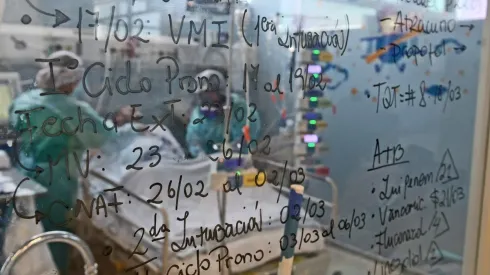 17/02: VMI (1era Intubación)
I Ciclo Prono: 17 al 19/02
Fecha Ext: /02
VNI: 23 - 26/02
CNAF: 26/02 al 02/03
2da Intubación: 02/03
Ciclo Prono: 03/03 al 06/03
- Atracurio →
- Propofol →
TQT: # 8 /03
ATB
• Imipenem
• Vancomic
• Fluconazol